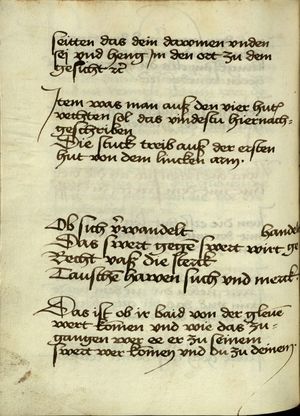 seitten das dein dawmen vnden
sei vnd heng Im den ort zu dem
gesicht etc
Item was man auß den vier hutn
vechten sol das vindestu hiernach
geschriben
Die stuck treib auß der ersten
hut von dem lincken arm
Ob sich verwandelt handel
Das swert gegen swert wirt ge
Recht vaß die sterck
Tauschen hawen such vnd merck
Das ist ob ir baid von der gleuen
wert komen vnd wie das zu
gangen wer ee er zu seinem
swert wer komen vnd du zu deinem